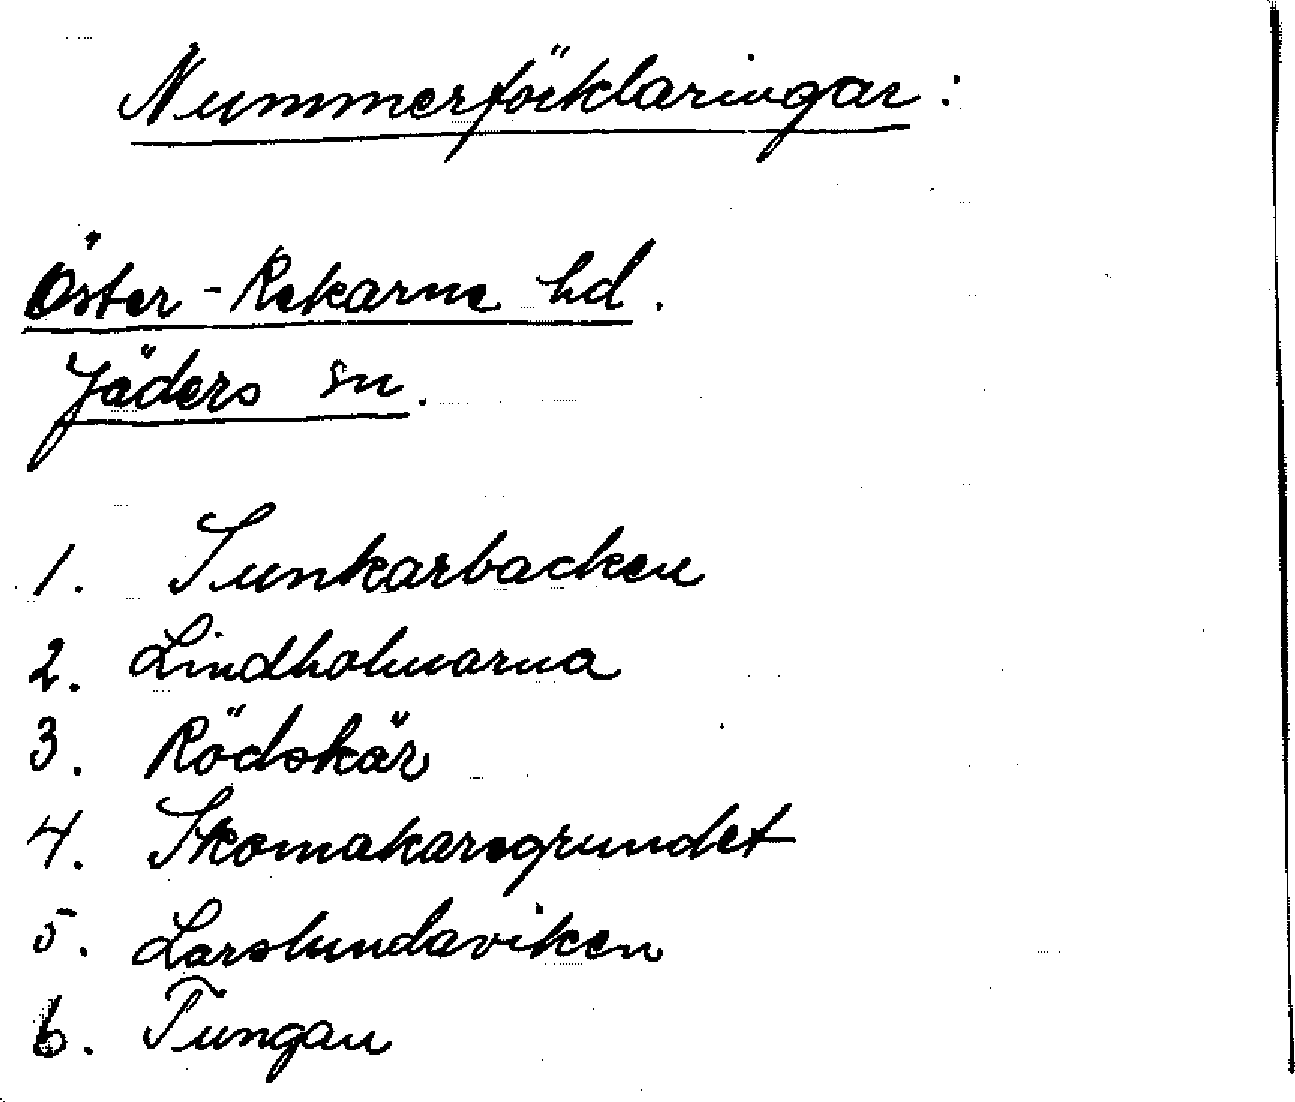 Nummerförklaringar:
Öster-Rekarne hd.
Jäders sn.
1. Sunkarbacken
2. Lindholmarna
3. Rödskär
4. Skomakaregrundet
5. Larslundaviken
6. Tungan